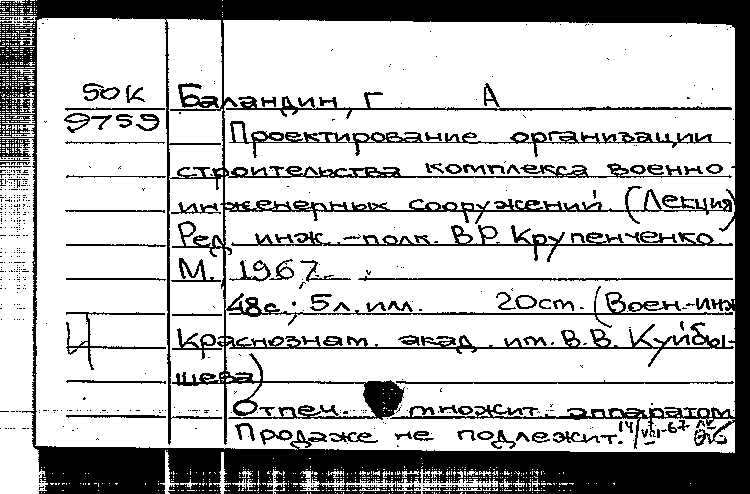 50К Баландин, Г А
9759 Проектирование организации
строительства комплекса военно-
инженерных сооружений. (Лекция)
Ред. инж.-полк. В.Р. Крупенченко.
М., 1967.
48с.; 5л.ил. 20ст. (Воен.-инж
Ч Краснознам. акад. им. В.В. Куйбы-
шева)
Отпеч. множит. аппаратом
Продаже не подлежит. 14/VIII-67